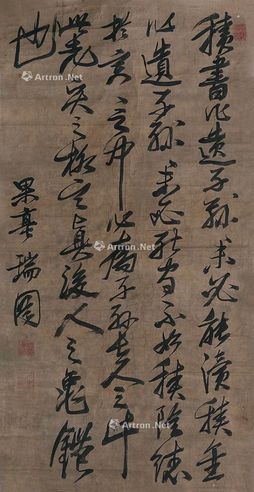 積書以遺子孫未必能讀積金
以遺子孫未必能守不如積陰德
於冥々之中以為子孫長久之計
此先賢之格言真後人之龜鑑
也
果亭瑞圖
Artron.Net
Artron.Net
Artron.Net
Artron.Net
Artron.Net
Artron.Net
Artron.Net
Artron.Net